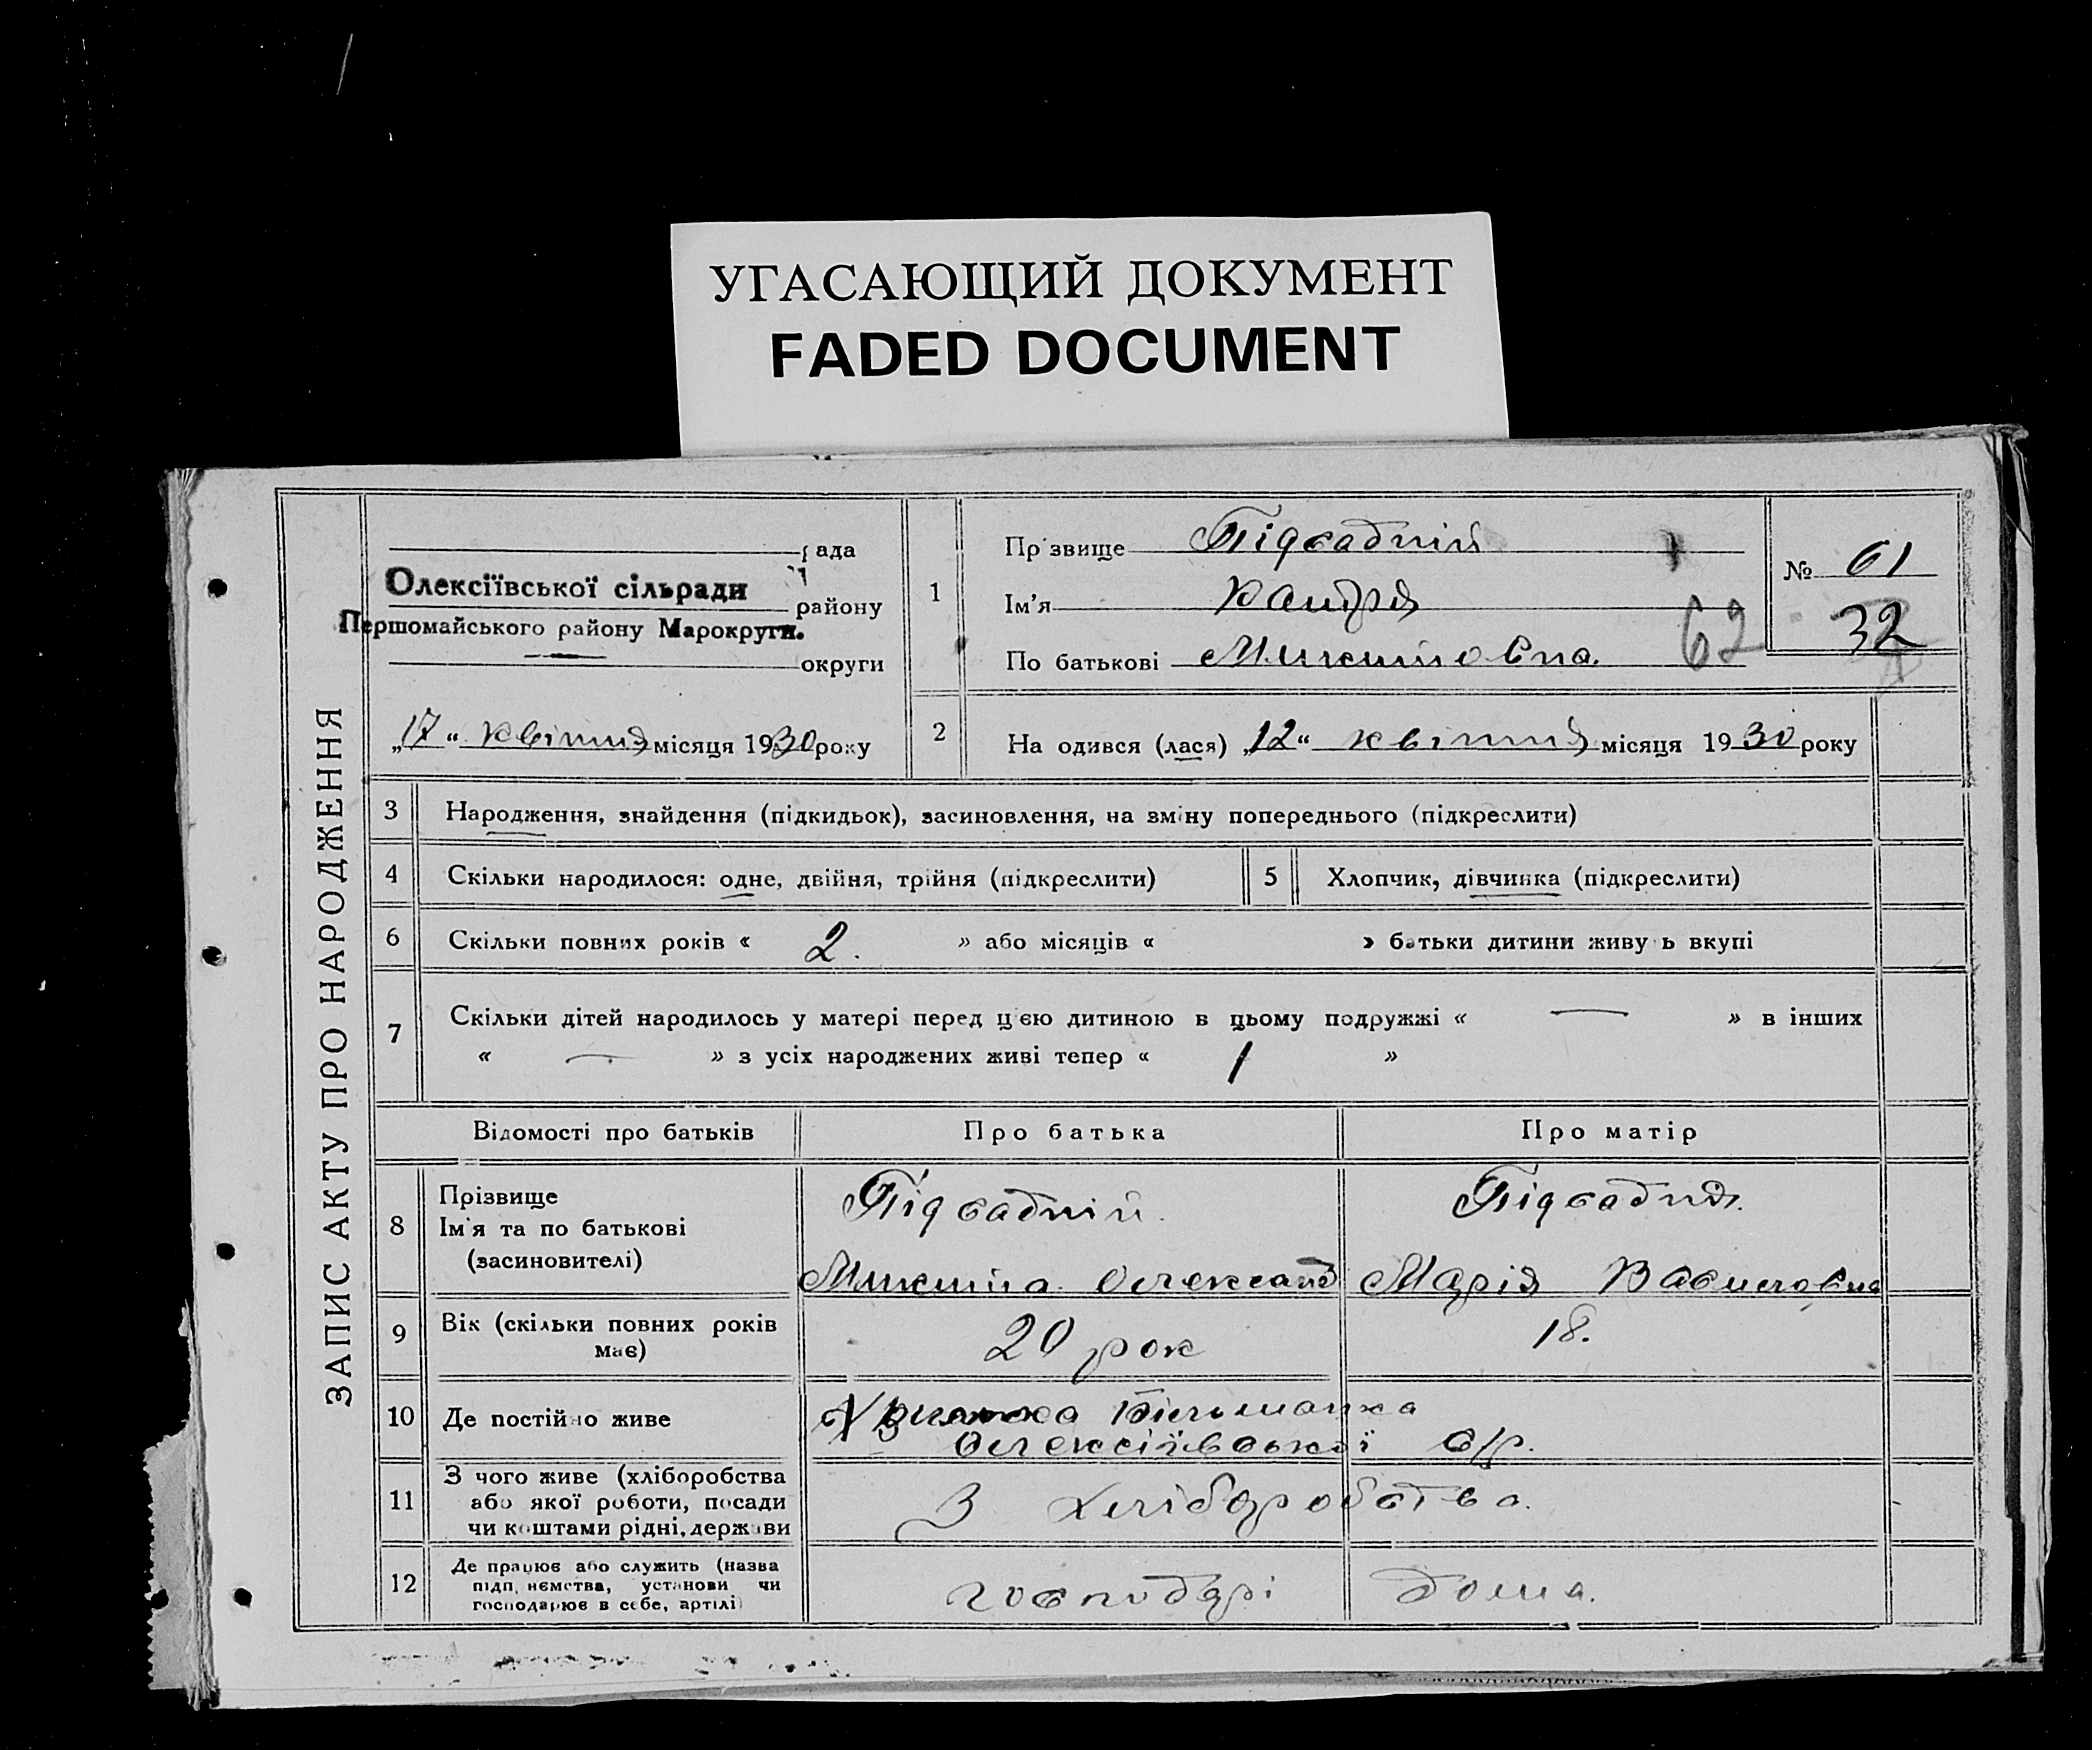 УГАСАЮЩИЙ ДОКУМЕНТ
FADED DOCUMENT
ЗАПИС АКТУ ПРО НАРОДЖЕННЯ
рада
Олексіївської сільради
району
Першомайського району Марокруги.
округи
„17“ квітня місяця 1930 року
1
Прізвище Підсадній
Ім’я
По батькові Микитовна.
№ 61
32
62
2
На одився (лася) „12“ квітня місяця 1930 року
3 Народження, знайдення (підкидьок), засиновлення, на зміну попереднього (підкреслити)
4 Скільки народилося: одне, двійня, трійня (підкреслити)
5 Хлопчик, дівчинка (підкреслити)
6 Скільки повних років « 2. » або місяців « » батьки дитини живуть вкупі
7 Скільки дітей народилось у матері перед цією дитиною в цьому подружжі « — » в інших
« — » з усіх народжених живі тепер « 1 »
Відомості про батьків Про батька Про матір
8 Прізвище
Ім’я та по батькові
(засиновителі)
Підсадній
Микита Олександ
Підсадня.
Марія Василовна
9 Вік (скільки повних років
має)
20 рок
18.
10 Де постійно живе
Олексіївської с/р.
11 З чого живе (хліборобства
або якої роботи, посади
чи коштами рідні, держави
З хліборобства.
12 Де працює або служить (назва
підприємства, установи чи
господарює в себе, артілі)
господарі дома.